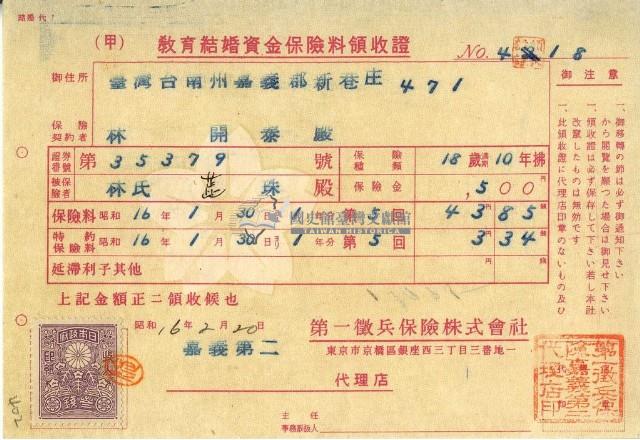 (甲) 教育結婚資金保險料領收證
No. 4818
御住所 臺灣台南州嘉義郡新巷庄 471
保險契約者 林開泰殿
證券番號 第 35379 號 保險種類 18歲滿期10年拂
被保險者 林氏 珠殿 保險金 ,500
保險料 昭和16年1月30日ヨリ1年分 第5回 4385
特約保險料 昭和16年1月30日ヨリ1年分 第5回 334
延滯利子其他
上記金額正ニ領收候也
昭和16年2月20日
嘉義第二
代理店
第一徵兵保險株式會社
東京市京橋區銀座西三丁目三番地一
主任
事務取扱人
御注意
一、御移轉の節は必ず御通知下さい
一、領收證は必ず保存して下さい若し本社から閲覽を願つた場合は御見せ下さい
一、此領收證に代理店印章のないもの及び改竄したものは無効です
國史館臺灣文獻館
TAIWAN HISTORICA